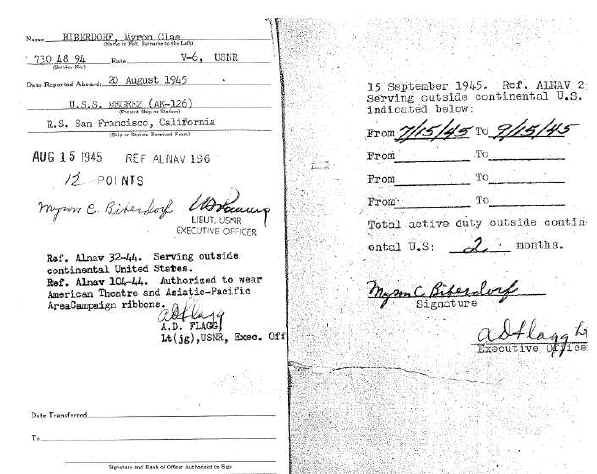 Name BIBERDORF, Myron Clas
(Name in Full, Surname to the Left)
730 48 94 Rate V-6, USNR
(Service No.)
Date Reported Aboard: 20 August 1945
U.S.S. MEGREZ (AK-126)
(Present Ship or Station)
R.S. San Francisco, California
(Ship or Station Received From)
AUG 15 1945 REF ALNAV 196
12 POINTS
Myron C. Biberdorf
LIEUT, USNR
EXECUTIVE OFFICER
Ref. Alnav 32-44. Serving outside
continental United States.
Ref. Alnav 104-44. Authorized to wear
American Theatre and Asiatic-Pacific
AreaCampaign ribbons.
A D Flagg
A.D. FLAGG
Lt(jg),USNR, Exec. Off
Date Transferred
To
Signature and Rank of Officer Authorized to Sign
15 September 1945. Ref. ALNAV 2
Serving outside continental U.S.
indicated below:
From 7/15/45 To 9/15/45
From To
From To
From To
Total active duty outside contin
ental U.S: 2 months.
Myron C Biberdorf
Signature
A D Flagg Lt
Executive Office